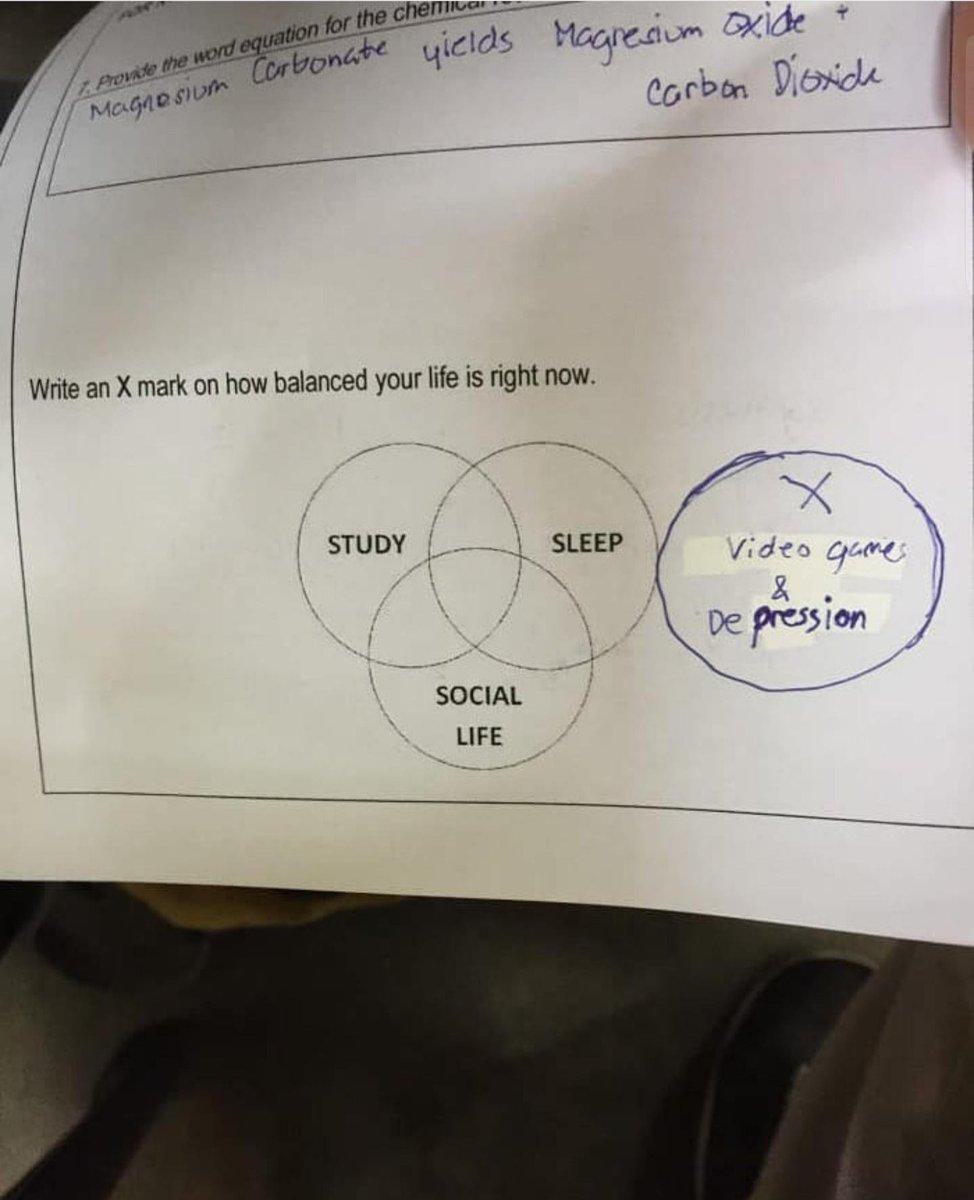 7. Provide the word equation for the chemical
Magnesium Carbonate yields Magnesium Oxide +
Carbon Dioxide
Write an X mark on how balanced your life is right now.
X
STUDY
SLEEP
Video games
&
Depression
SOCIAL
LIFE